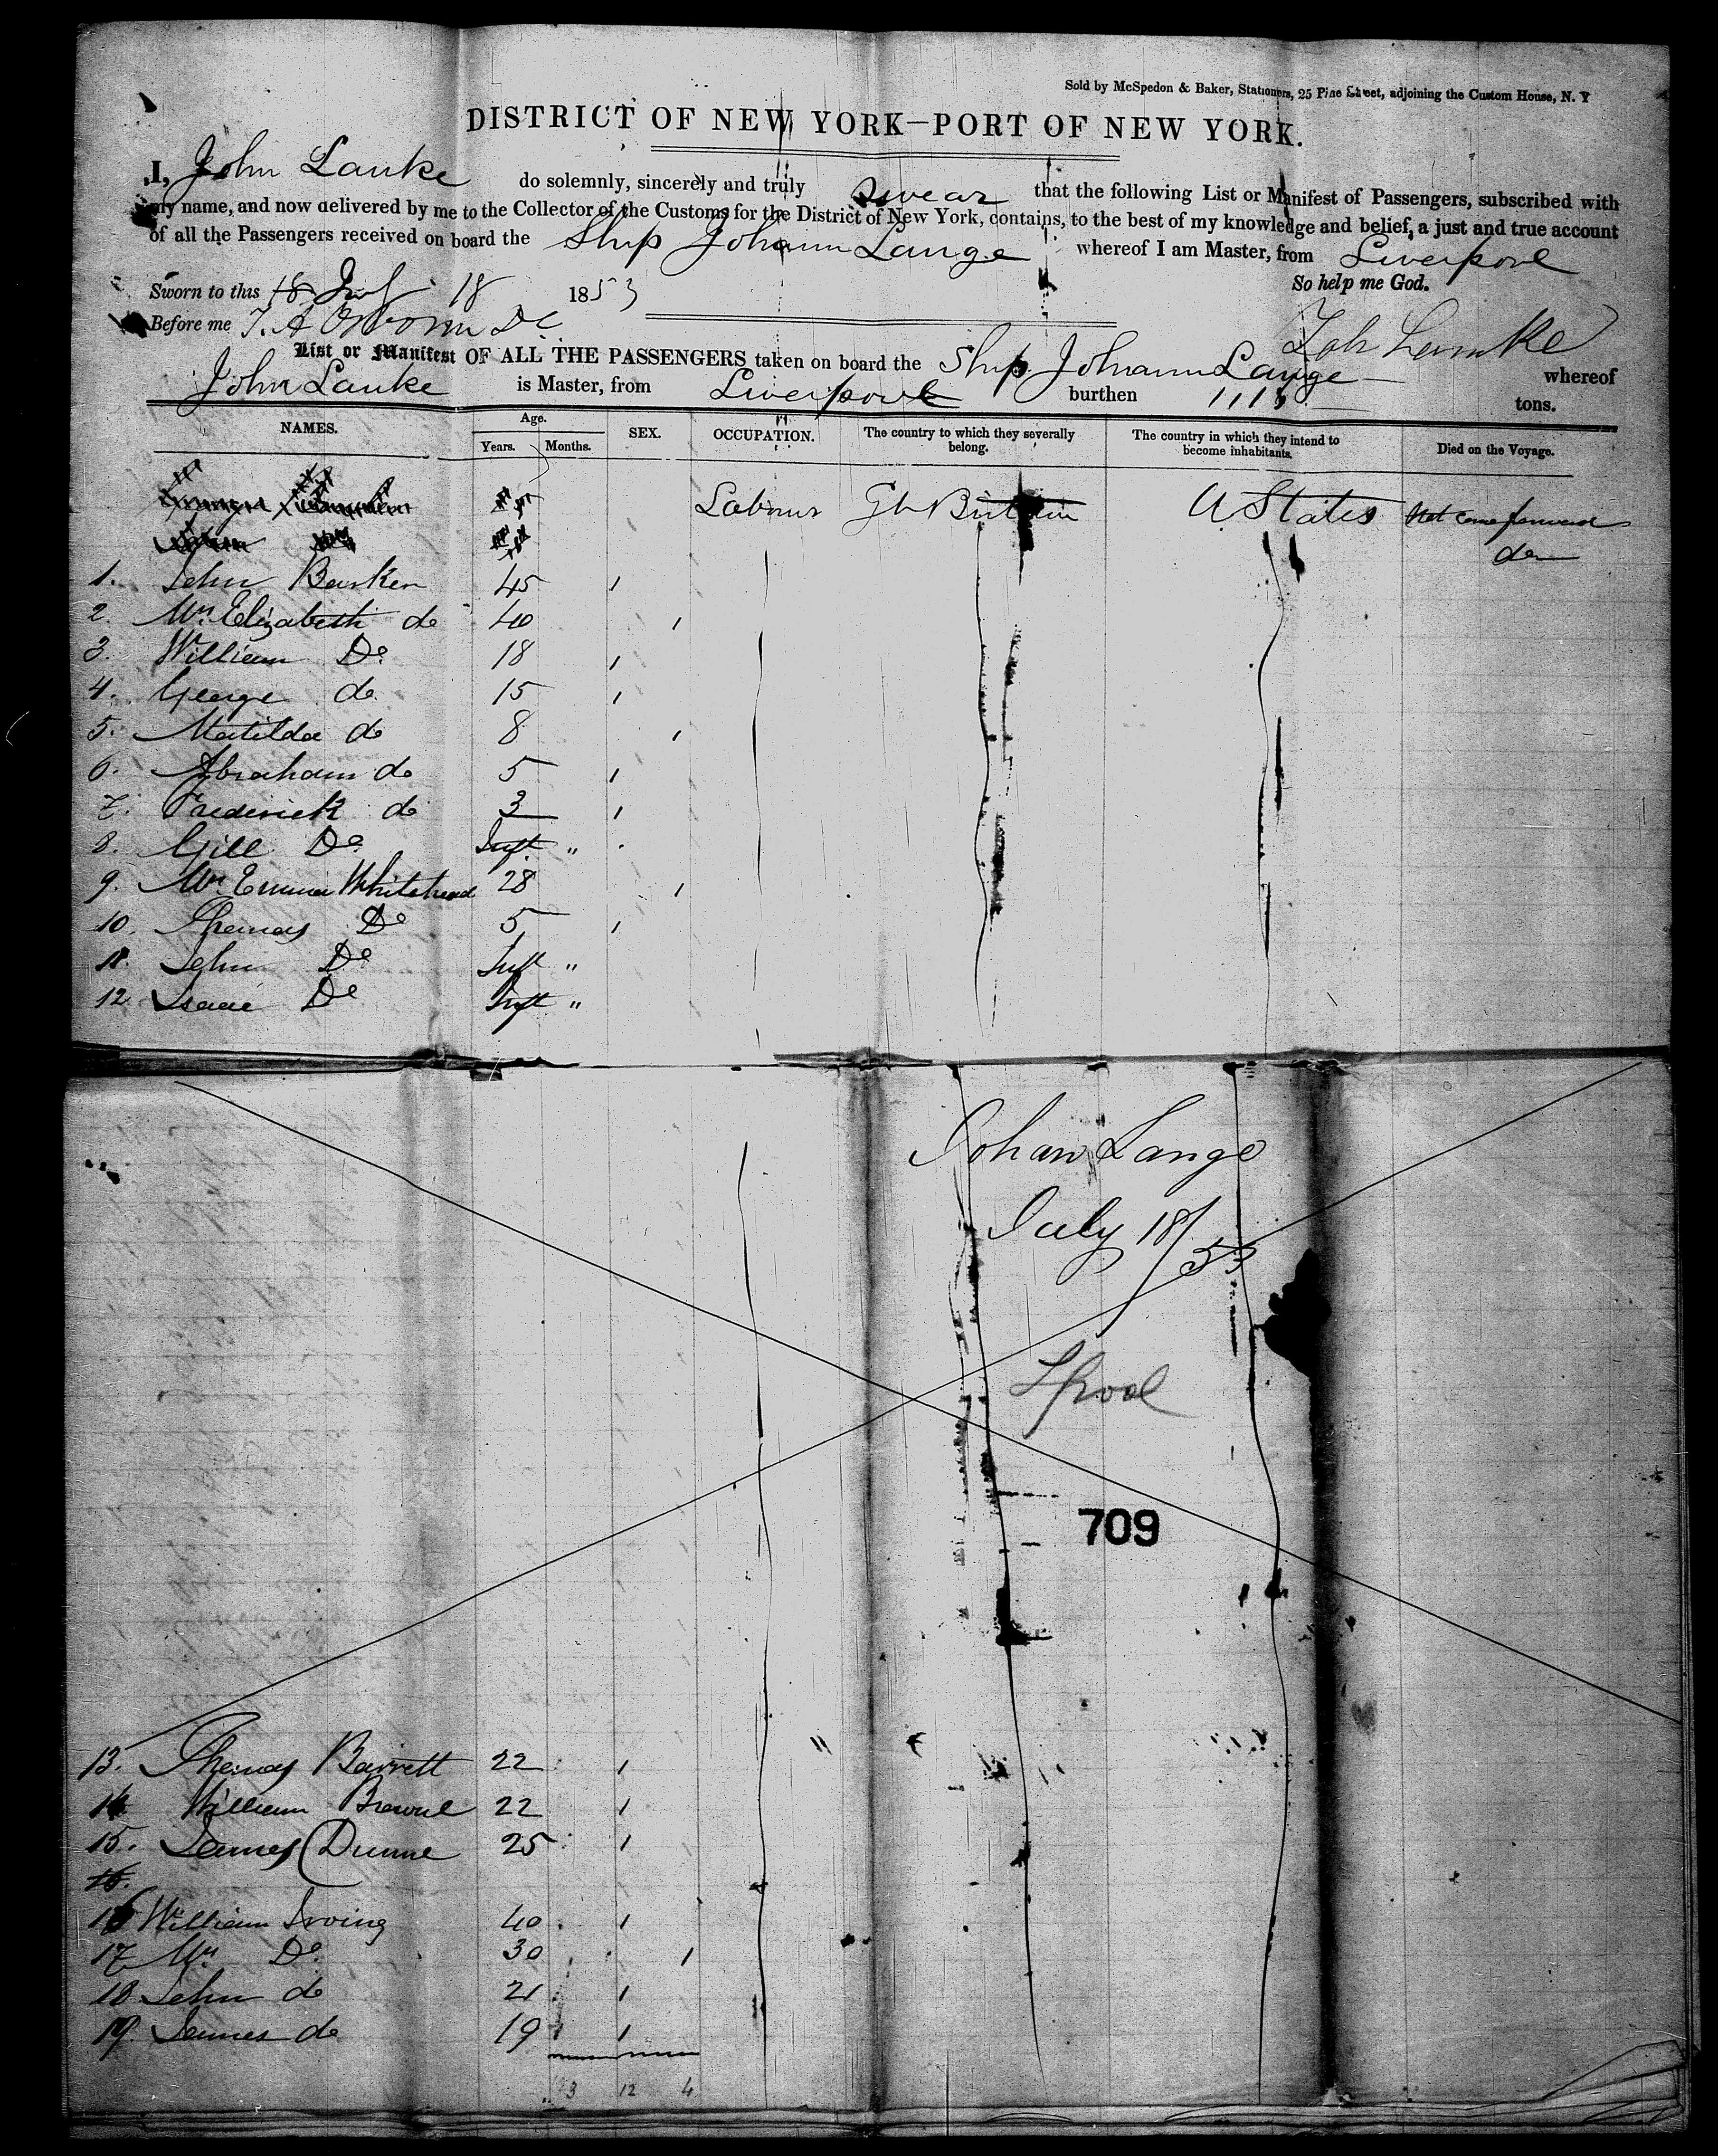 Sold by McSpedon & Baker, Stationers, 25 Pine Street, adjoining the Custom House, N. Y
DISTRICT OF NEW YORK—PORT OF NEW YORK.
I, John Lanke do solemnly, sincerely and truly swear that the following List or Manifest of Passengers, subscribed with
my name, and now delivered by me to the Collector of the Customs for the District of New York, contains, to the best of my knowledge and belief, a just and true account
of all the Passengers received on board the Ship Johann Lange whereof I am Master, from Liverpool
Sworn to this 18 1853 So help me God.
Before me J. A Osborn DC
Joh Lamke
List or Manifest OF ALL THE PASSENGERS taken on board the Ship Johann Lange whereof
John Lanke is Master, from Liverpool burthen tons.
NAMES. Age. Years. Months. SEX. OCCUPATION. The country to which they severally belong. The country in which they intend to become inhabitants. Died on the Voyage.
Labour Gt Britain U States Not come forward
do
1. John Barker 45 1
2. Mrs Elizabeth do 40 1
3. William Do 18 1
4. George do 15 1
5. Matilda do 8 1
6. Abraham do 5 1
7. Frederick do 3 1
8. Gill Do Inft "
9. Mrs Emma Whitehead 28 1
10. Thomas Do 5 1
11. John Do Inft "
12 Isaac Do Inft "
Johan Lange
July 18/53
Lpool
709
13. Thomas Barrett 22 1
14 William Browne 22 1
15. James Dunne 25 1
16.
16 William Irving 40 1
17 Mrs Do 30 1
18 John do 21 1
19. James do 19 1
3 12 4